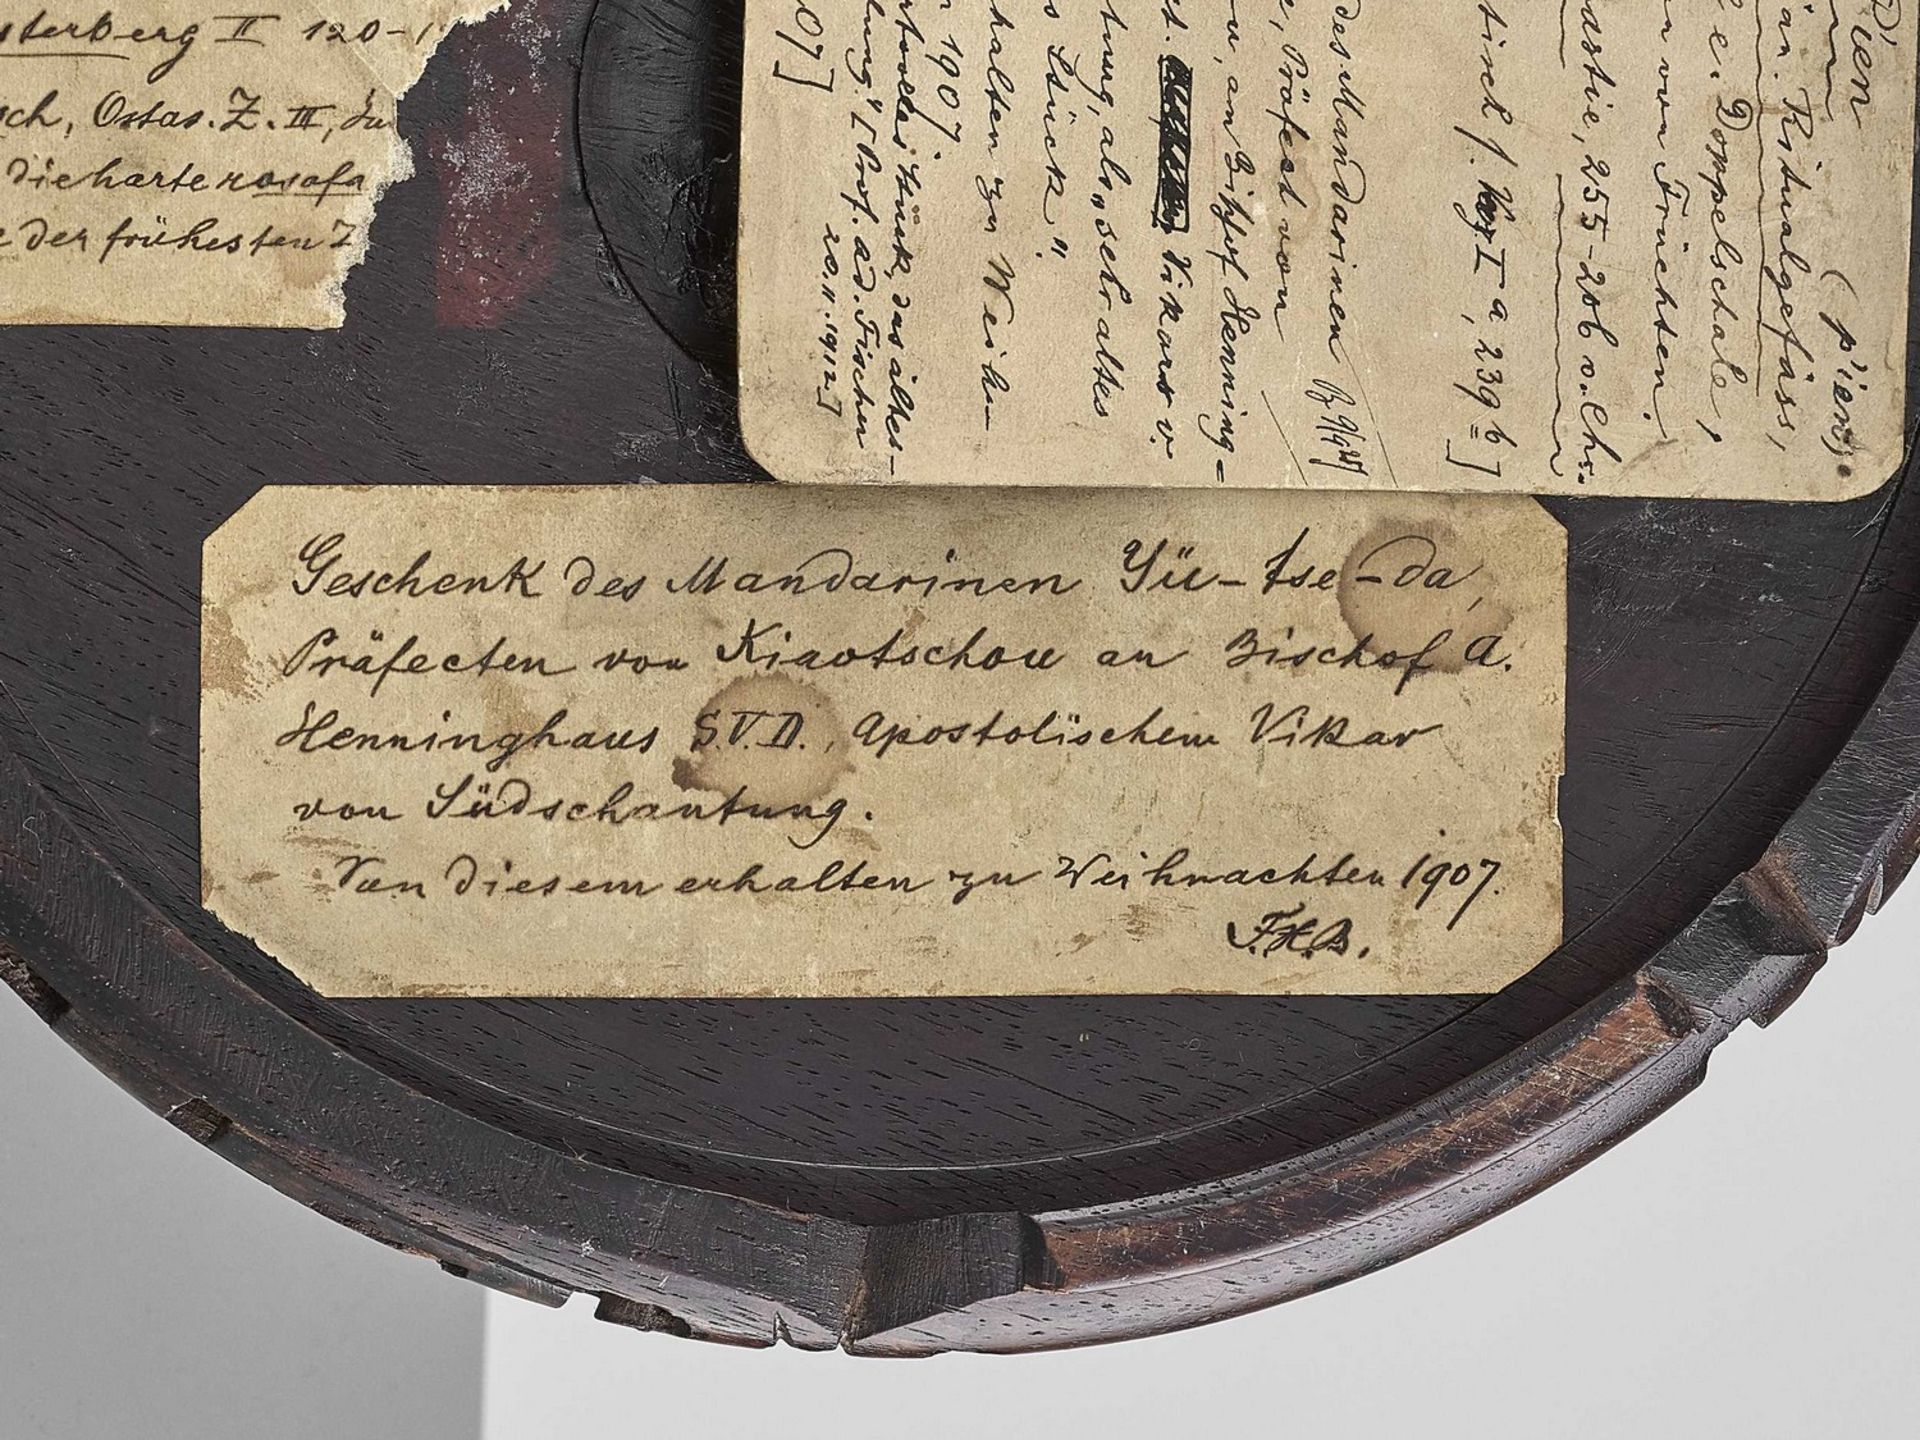 sterberg II 120-1
sch, Ostas. Z. III, Ju
die harte rosafa
e der frühesten Z
Dien (p'ien
Ritualgefäss,
e. Doppelschale,
von Früchten.
nastie, 255-206 v. Chr.
I a, 239 b]
des Mandarinen
, Präfect von
u, an Bischof Henning=
t. Vikars v.
tung, als „sehr altes
s Stück".
halten zu Weihn
n 1907
rtvolles Stück, das ältes-
lung." Prof. Ad. Fischer
20.11.1912.]
07]
Geschenk des Mandarinen Yü-tse-da,
Präfecten von Kiaotschou an Bischof A.
Henninghaus S.V.D., Apostolischem Vikar
von Südschantung.
Von diesem erhalten zu Weihnachten 1907.
F.H.B.